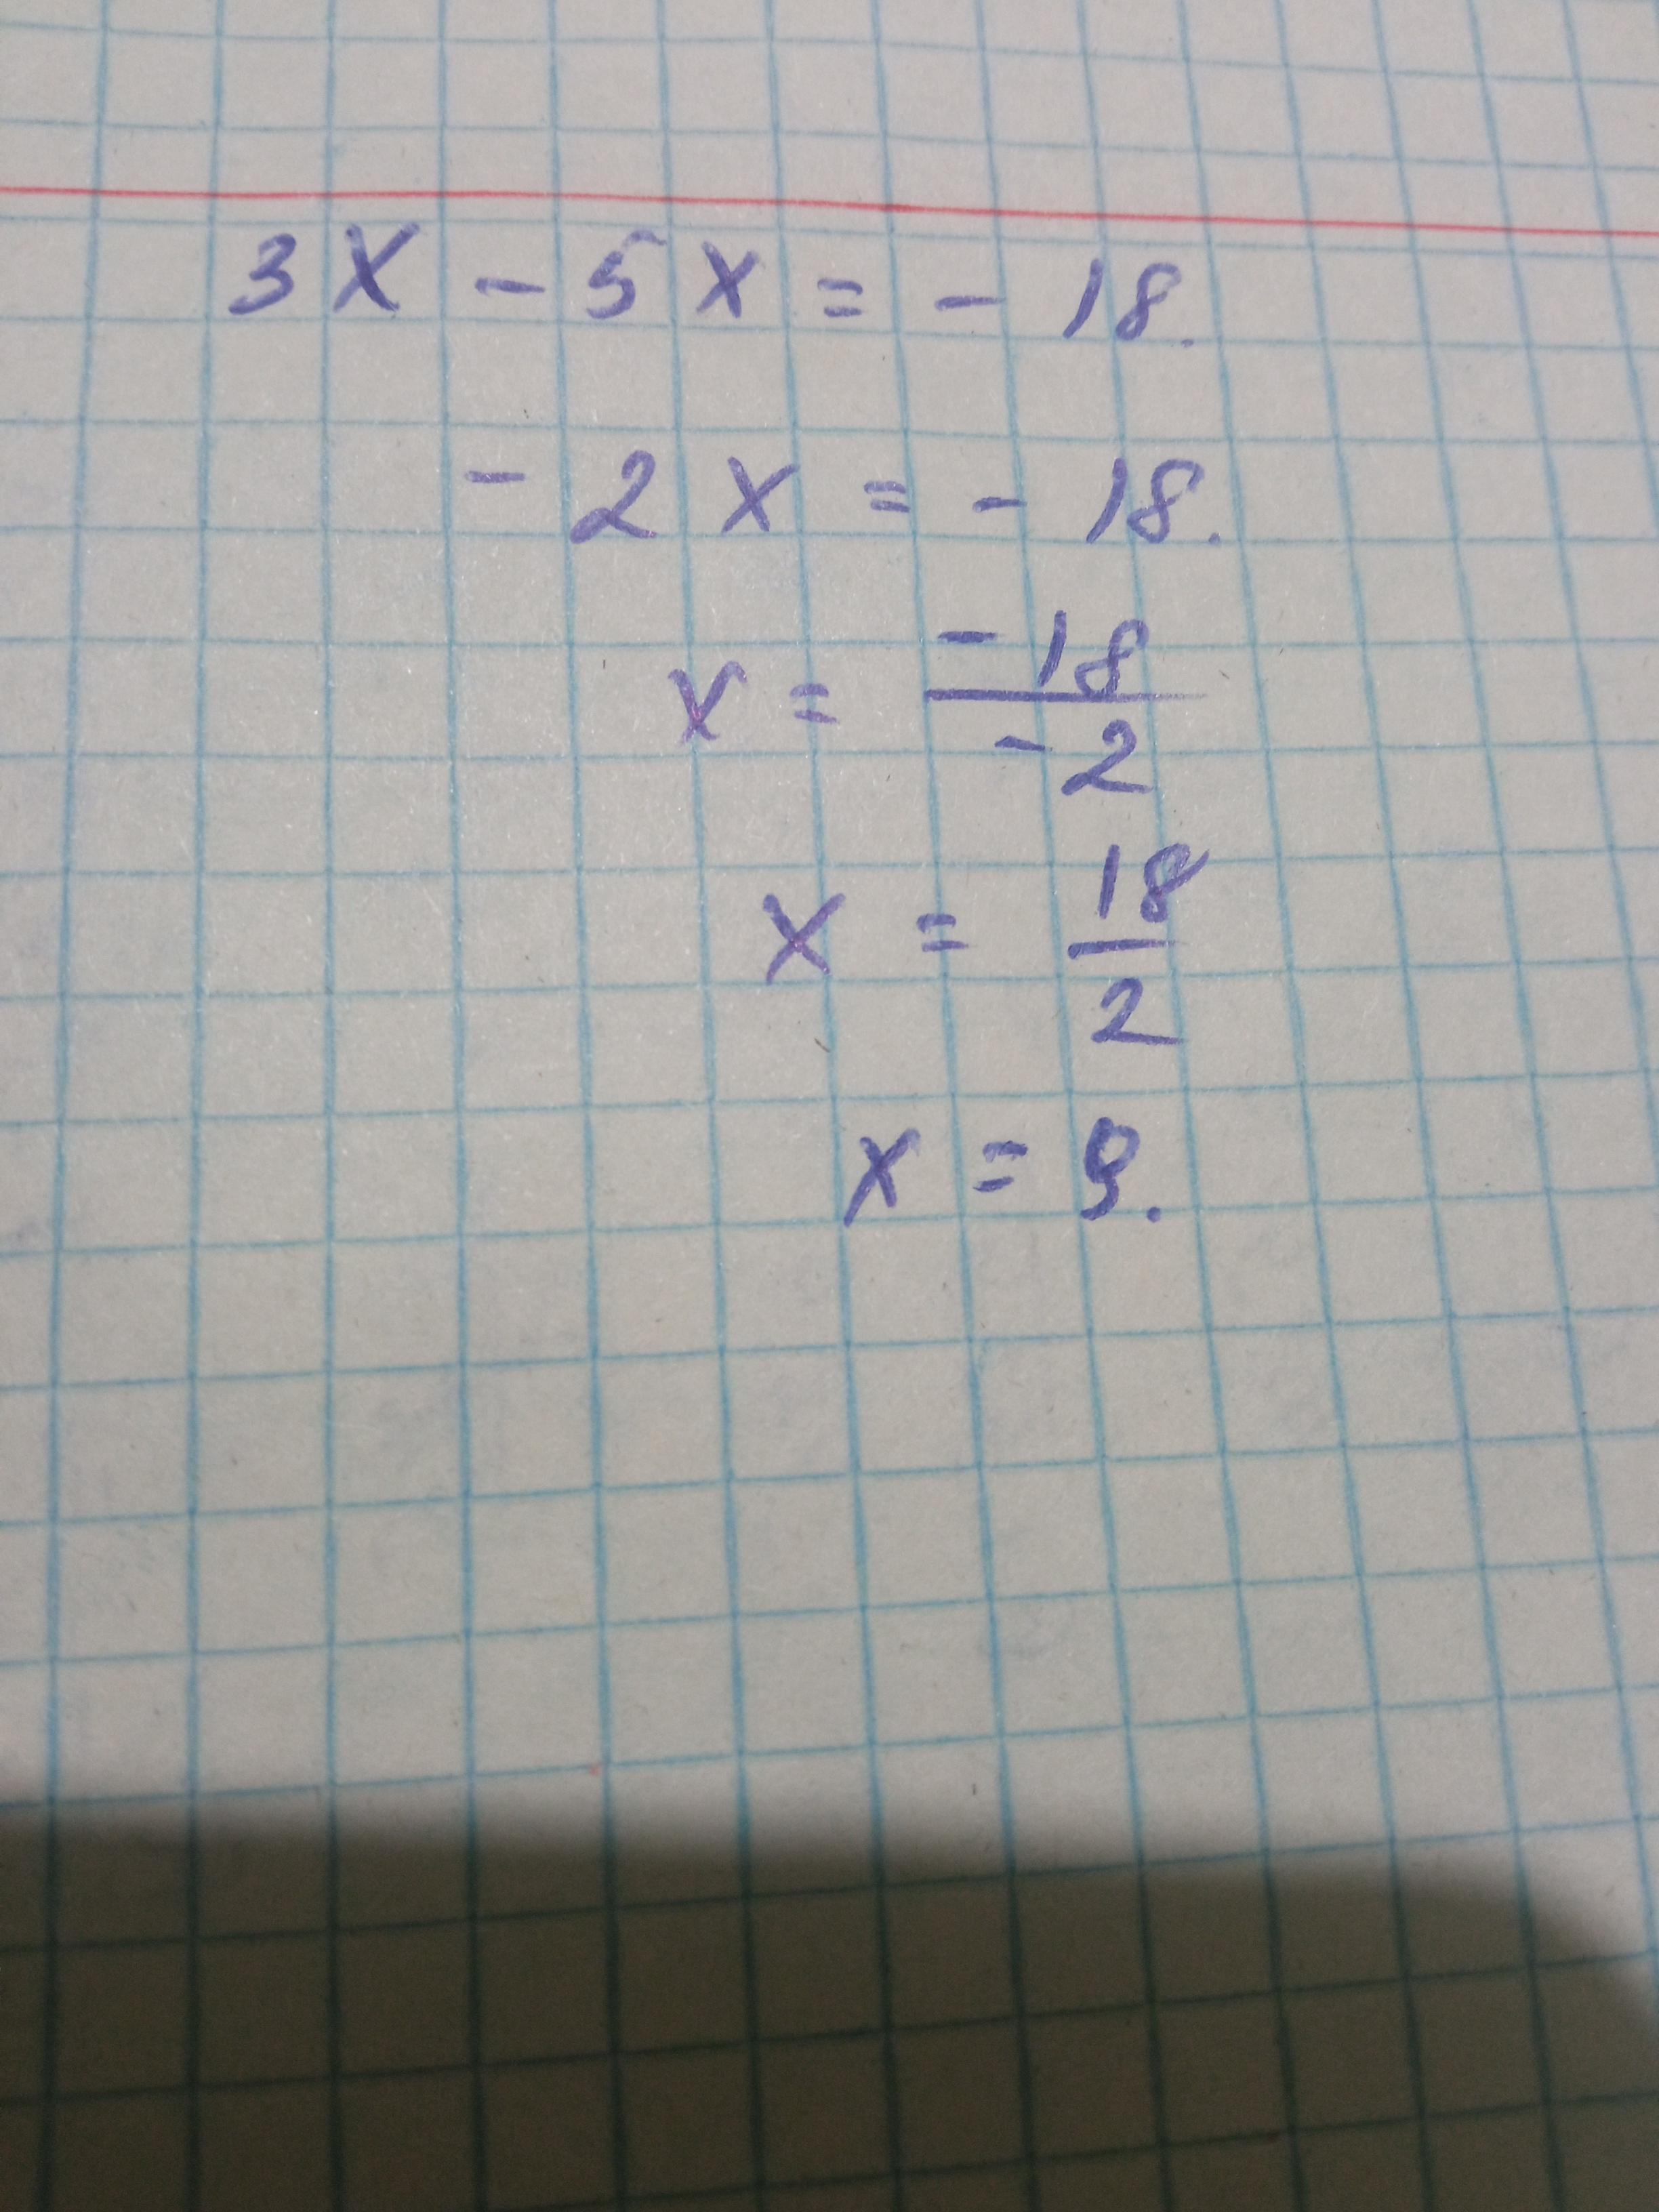 3x - 5x = - 18.
- 2x = - 18.
x = -18/-2
x = 18/2
x = 9.